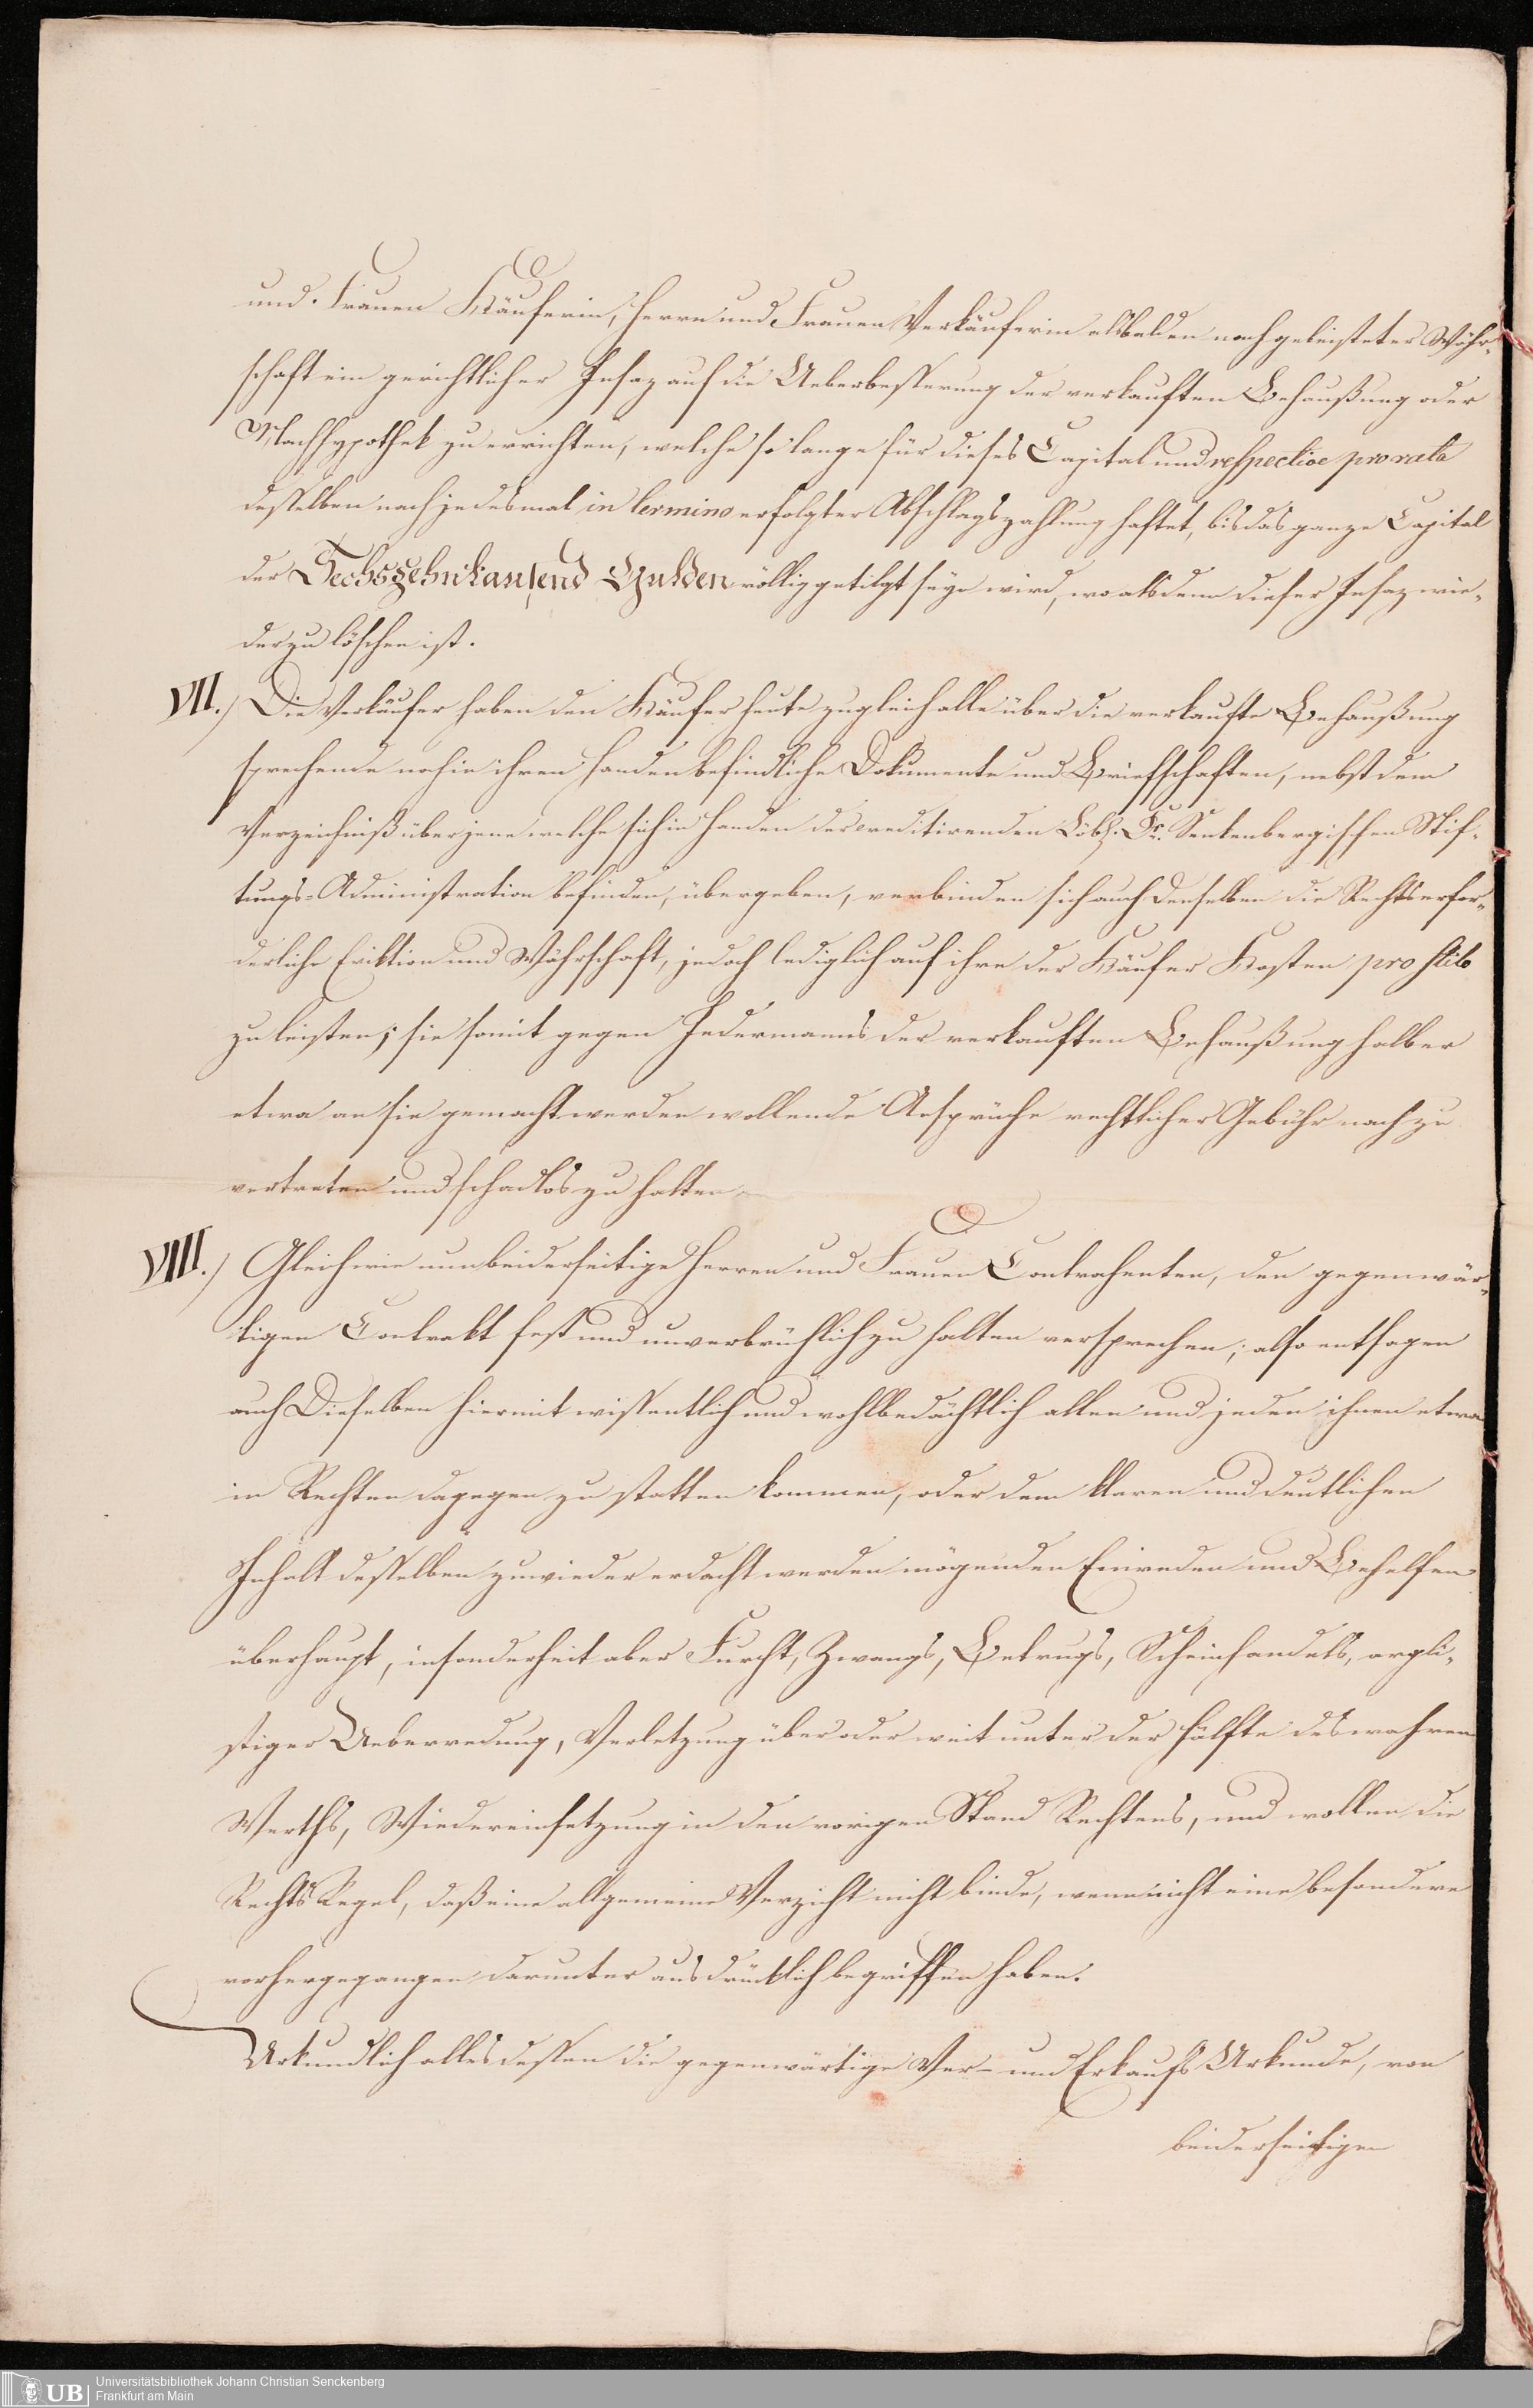 und Frauen Käuferin, Herrn und Frauen Verkäuferin alsbalden nach geleisteter Währ-
schaft ein gerichtlicher Insaz auf die Ueberbesserung der verkauften Behaußung oder
Nachhypothek zu errichten, welche so lange für dieses Capital und respective pro rata
desselben nach jedesmal in termino erfolgter Abschlagszahlung haftet, bis das ganze Capital
der Sechszehntausend Gulden völlig getilgt seyn wird, wo alsdenn dieser Insaz wie-
der zu löschen ist.
VII.) Die Verkäufer haben den Käufer heute zugleich alle über die verkaufte Behaußung
sprechende noch in ihren Handen befindliche Dokumente und Briefschaften, nebst dem
Verzeichniß über jene welche sich in Handen der creditirenden Löbl. Dr. Senkenbergischen Stif-
tungs-Administration befinden, übergeben, verbinden sich auch denselben die Rechtserfor-
derliche Eviktion und Währschaft, jedoch lediglich auf ihre der Käufer Kosten pro stilo
zu leisten; sie somit gegen Jedermanns der verkauften Behaußung halber
etwa an sie gemacht werden wollende Ansprüche rechtlicher Gebühr nach zu
vertreten und schadlos zu halten
VIII.) Gleichwie nun beiderseitige Herren und Frauen Contrahenten, den gegenwär-
tigen Contrakt fest und unverbrüchlich zu halten versprechen; also entsagen
auch Dieselben hiermit wissentlich und wohlbedächtlich allen und jeden ihnen etwa
in Rechten dagegen zu statten kommen, oder dem klaren und deutlichen
Inhalt desselben zuwieder erdacht werden mögenden Einreden und Behelfen
überhaupt, insonderheit aber Furcht, Zwangs, Betrugs, Scheinhandels, argli-
stiger Ueberredung, Verletzung über oder weit unter der Hälfte des wahren
Werths, Wiedereinsetzung in den vorigen Stand Rechtens, und wollen die
Rechts Regel, daß eine allgemeine Verzicht nicht binde, wenn nicht eine besondere
vorhergegangen darunter ausdrücklich begriffen haben.
Urkundlich alles dessen die gegenwärtige Ver- und Erkaufs Urkunde, von
beiderseitigen
UB Universitätsbibliothek Johann Christian Senckenberg
Frankfurt am Main